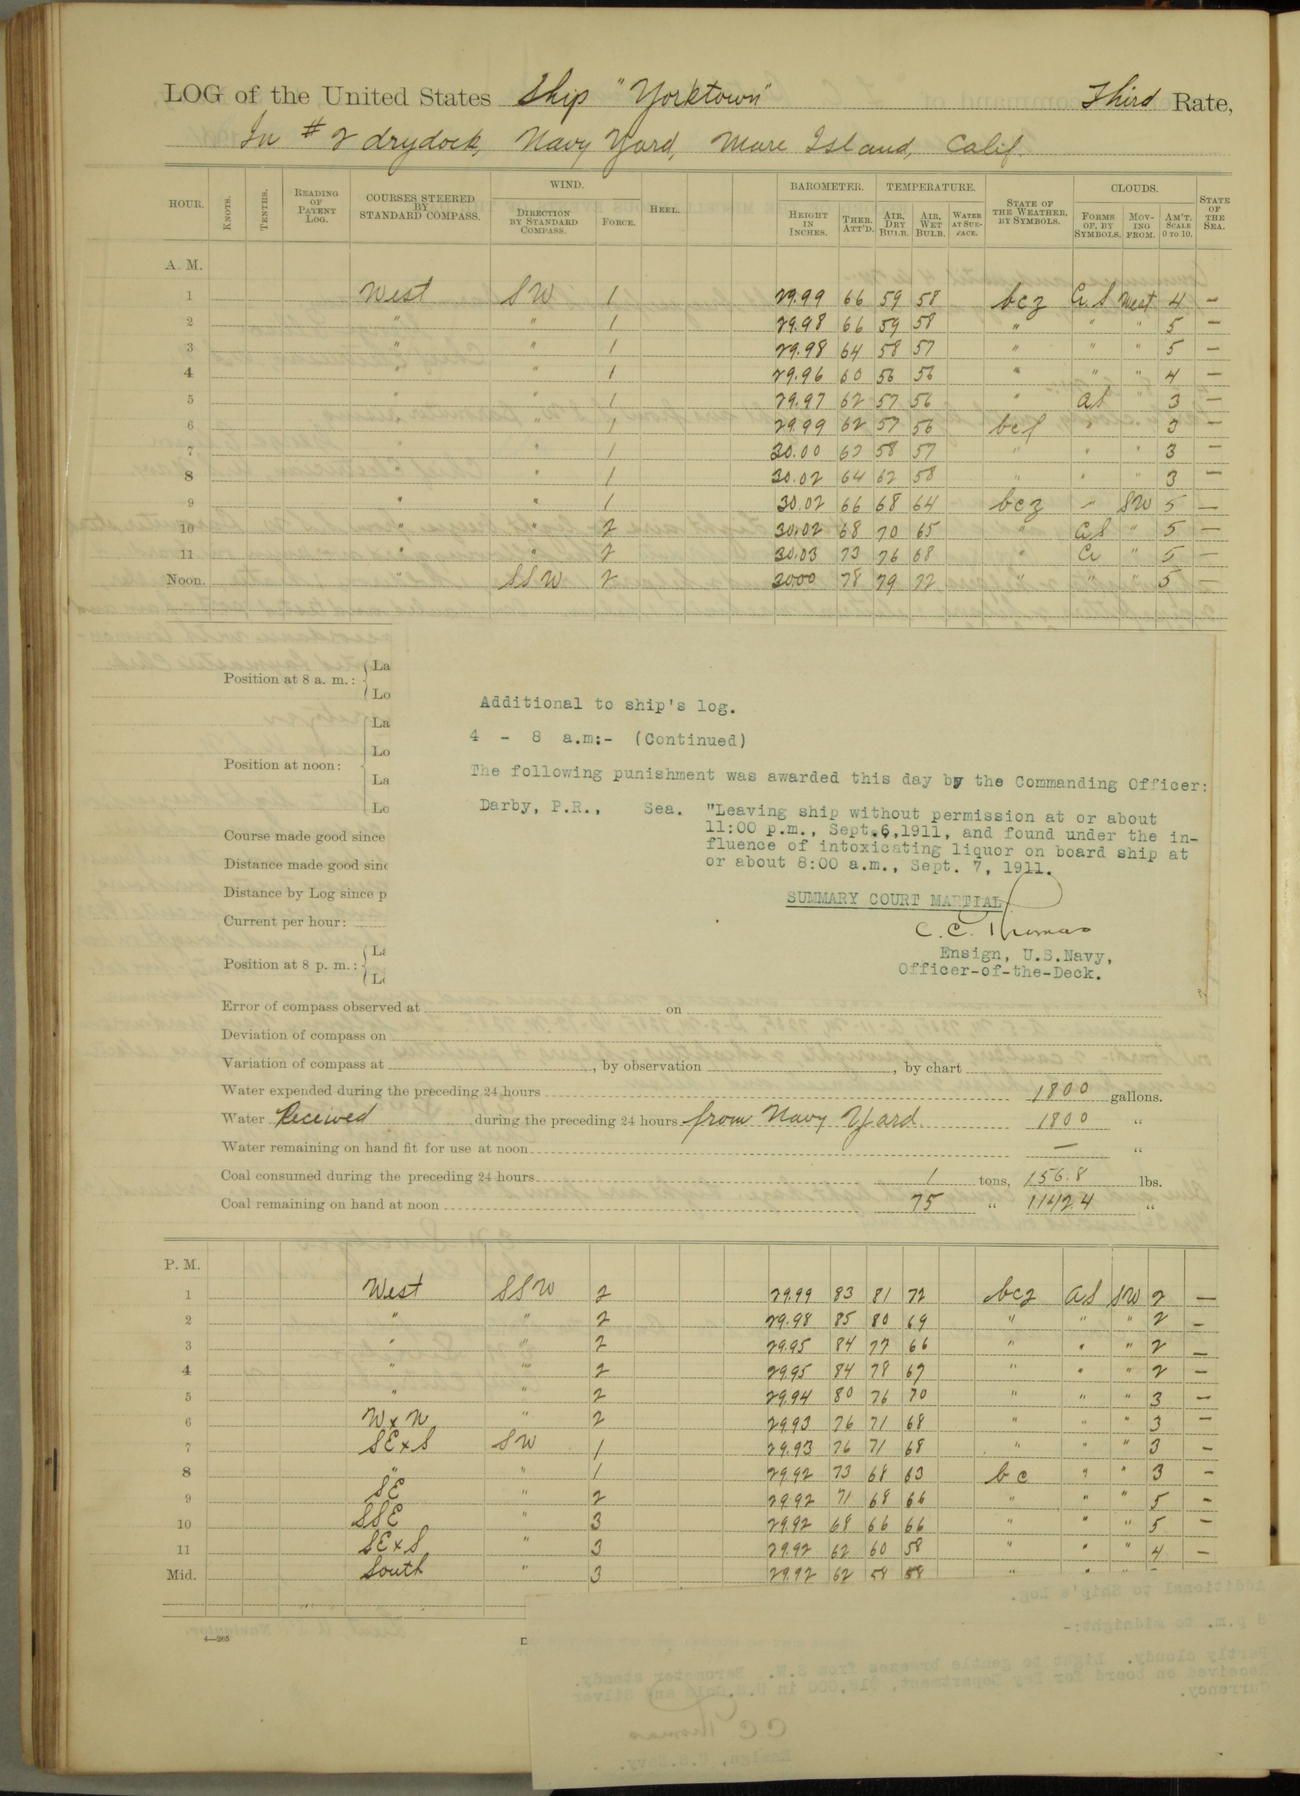 LOG of the United States Ship "Yorktown" Third Rate,
In # 2 drydock, Navy Yard, Mare Island, Calif.
HOUR. KNOTS. TENTHS. READING OF PATENT LOG. COURSES STEERED BY STANDARD COMPASS. WIND. DIRECTION BY STANDARD COMPASS. FORCE. HEEL. BAROMETER. HEIGHT IN INCHES. THER. ATT'D. TEMPERATURE. AIR, DRY BULB. AIR, WET BULB. WATER AT SURFACE. STATE OF THE WEATHER, BY SYMBOLS. CLOUDS. FORMS OF, BY SYMBOLS. MOVING FROM. AM'T. SCALE 0 TO 10. STATE OF THE SEA.
A. M.
1 West SW 1 29.99 66 59 58 bcz West 4 —
2 " " 1 29.98 66 59 58 " " " 5 —
3 " " 1 29.98 64 58 57 " " " 5 —
4 " " 1 29.96 60 56 56 " " " 4 —
5 " " 1 29.97 62 57 56 " " 3 —
6 " " 1 29.99 62 57 56 " " 3 —
7 " " 1 30.00 62 58 57 " " " 3 —
8 " " 1 30.02 64 62 58 " " " 3 —
9 " " 1 30.02 66 68 64 bcz " SW 5 —
10 " " 2 30.02 68 70 65 " " 5 —
11 " " 2 30.03 73 76 68 " " 5 —
Noon. " SSW 2 30.00 78 79 72 " " " 5 —
Position at 8 a. m.: La
Lo
Position at noon: La
Lo
La
Lo
Course made good since
Distance made good sinc
Distance by Log since p
Current per hour:
Position at 8 p. m.: La
Lo
Additional to ship's log.
4 - 8 a.m:- (Continued)
The following punishment was awarded this day by the Commanding Officer:
Darby, P.R., Sea. "Leaving ship without permission at or about
11:00 p.m., Sept.6,1911, and found under the in-
fluence of intoxicating liquor on board ship at
or about 8:00 a.m., Sept. 7, 1911.
SUMMARY COURT MARTIAL
C. C. Thomas
Ensign, U.S.Navy,
Officer-of-the-Deck.
Error of compass observed at on
Deviation of compass on
Variation of compass at , by observation , by chart
Water expended during the preceding 24 hours 1800 gallons.
Water Received during the preceding 24 hours from Navy Yard. 1800 "
Water remaining on hand fit for use at noon — "
Coal consumed during the preceding 24 hours 1 tons, 156.8 lbs.
Coal remaining on hand at noon 75 " 1142.4 "
P. M.
1 West SSW 2 29.99 83 81 72 bcz SW 2 —
2 " " 2 29.98 85 80 69 " " " 2 —
3 " " 2 29.95 84 77 66 " " " 2 —
4 " " 2 29.95 84 78 67 " " " 2 —
5 " " 2 29.94 80 76 70 " " " 3 —
6 WxN " 2 29.93 76 71 68 " " " 3 —
7 SExS SW 1 29.93 76 71 68 " " " 3 —
8 " " 1 29.92 73 68 63 bc " " 3 —
9 SE " 2 29.92 71 68 66 " " " 5 —
10 SSE " 3 29.92 68 66 66 " " " 5 —
11 SExS " 3 29.92 62 60 58 " " " 4 —
Mid. South " 3 29.92 62 58 58 " " "
4—265